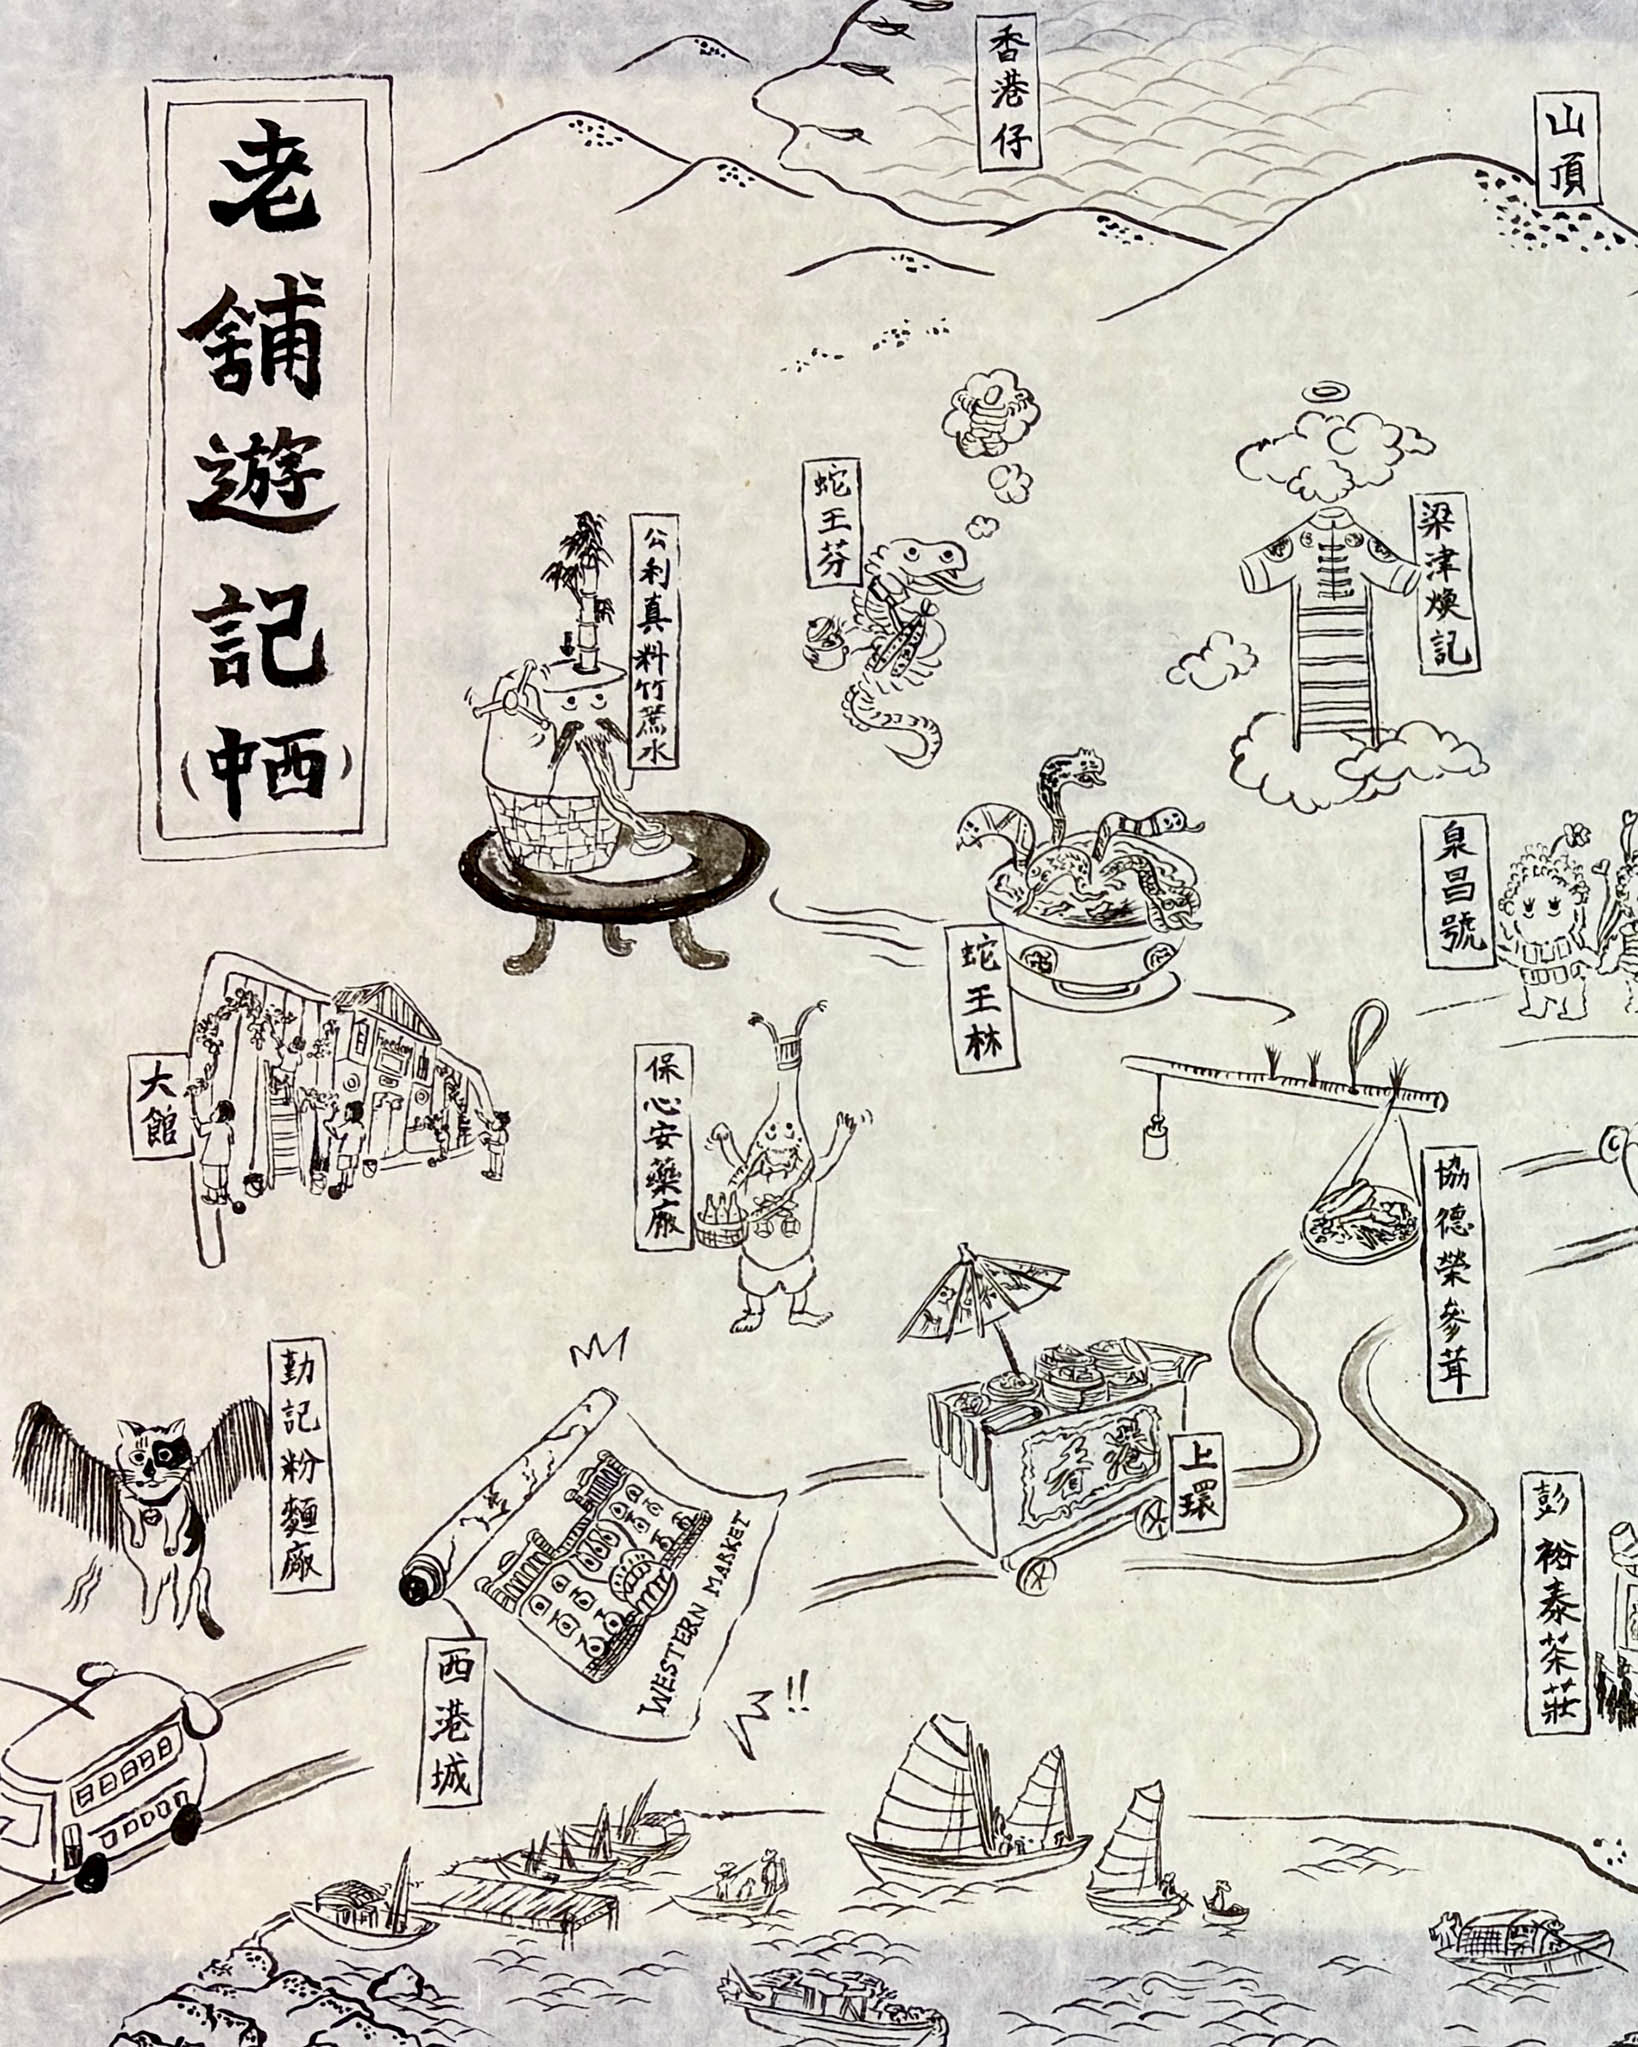 老舖遊記
(中西)
香港仔
山頂
公利真料竹蔗水
蛇王芬
梁津煥記
泉昌號
蛇王林
大館
Freedom
保心安藥廠
協德榮參茸
勤記粉麵廠
香港
上環
WESTERN MARKET
西港城
彭裕泰茶莊
!!